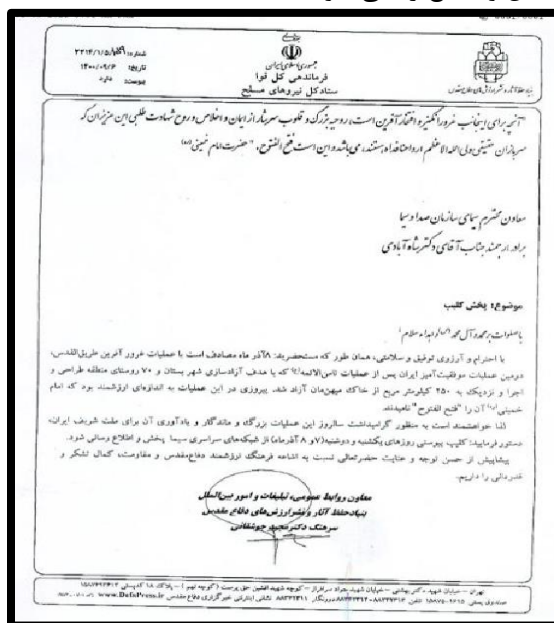 شماره: ۳۲۱۴/۱/۵/
تاریخ: ۱۴۰۰/۰۹/۶
پیوست: دارد
جمهوری اسلامی ایران
فرماندهی کل قوا
ستاد کل نیروهای مسلح
آنچه برای اینجانب غرورانگیز و افتخارآفرین است، روحیه بزرگ و قلوب سرشار از ایمان و اخلاص و روح شهادت طلبی این عزیزان که
سربازان حقیقی ولی الله الاعظم ارواحنا فداه هستند، می باشد و این است فتح الفتوح. "حضرت امام خمینی (ره)"
معاون محترم سیمای سازمان صدا و سیما
برادر ارجمند جناب آقای دکتر شاه آبادی
موضوع: پخش کلیپ
با صلوات بر محمد و آل محمد (ص) و اهداء سلام؛
با احترام و آرزوی توفیق و سلامتی، همان طور که مستحضرید: ۸ آذر ماه مصادف است با عملیات غرور آفرین طریق‌القدس،
دومین عملیات موفقیت‌آمیز ایران پس از عملیات ثامن‌الائمه(ع) که با هدف آزادسازی شهر بستان و ۷۰ روستای منطقه طراحی و
اجرا و نزدیک به ۲۵۰ کیلومتر مربع از خاک میهن‌مان آزاد شد. پیروزی در این عملیات به اندازه‌ای ارزشمند بود که امام
خمینی(ره) آن را "فتح الفتوح" نامیدند.
لذا خواهشمند است به منظور گرامیداشت سالروز این عملیات بزرگ و ماندگار و یادآوری آن برای ملت شریف ایران،
دستور فرمایید: کلیپ پیوستی روزهای یکشنبه و دوشنبه(۷ و ۸ آذرماه) از شبکه‌های سراسری سیما پخش و اطلاع رسانی شود.
پیشاپیش از حسن توجه و عنایت حضرتعالی نسبت به اشاعه فرهنگ ارزشمند دفاع‌مقدس و مقاومت، کمال تشکر و
قدردانی را داریم.
معاون روابط عمومی، تبلیغات و امور بین‌الملل
بنیاد حفظ آثار و نشر ارزش های دفاع مقدس
سرهنگ دکتر مجید
تهران – خیابان شهید دکتر بهشتی – خیابان شهید جواد سرافراز – کوچه شهید افشین حق پرست (کوچه نهم) – پلاک ۱۸ کدپستی
صندوق پستی تلفن دورنگار نشانی اینترنتی خبرگزاری دفاع مقدس www.DefaPress.ir